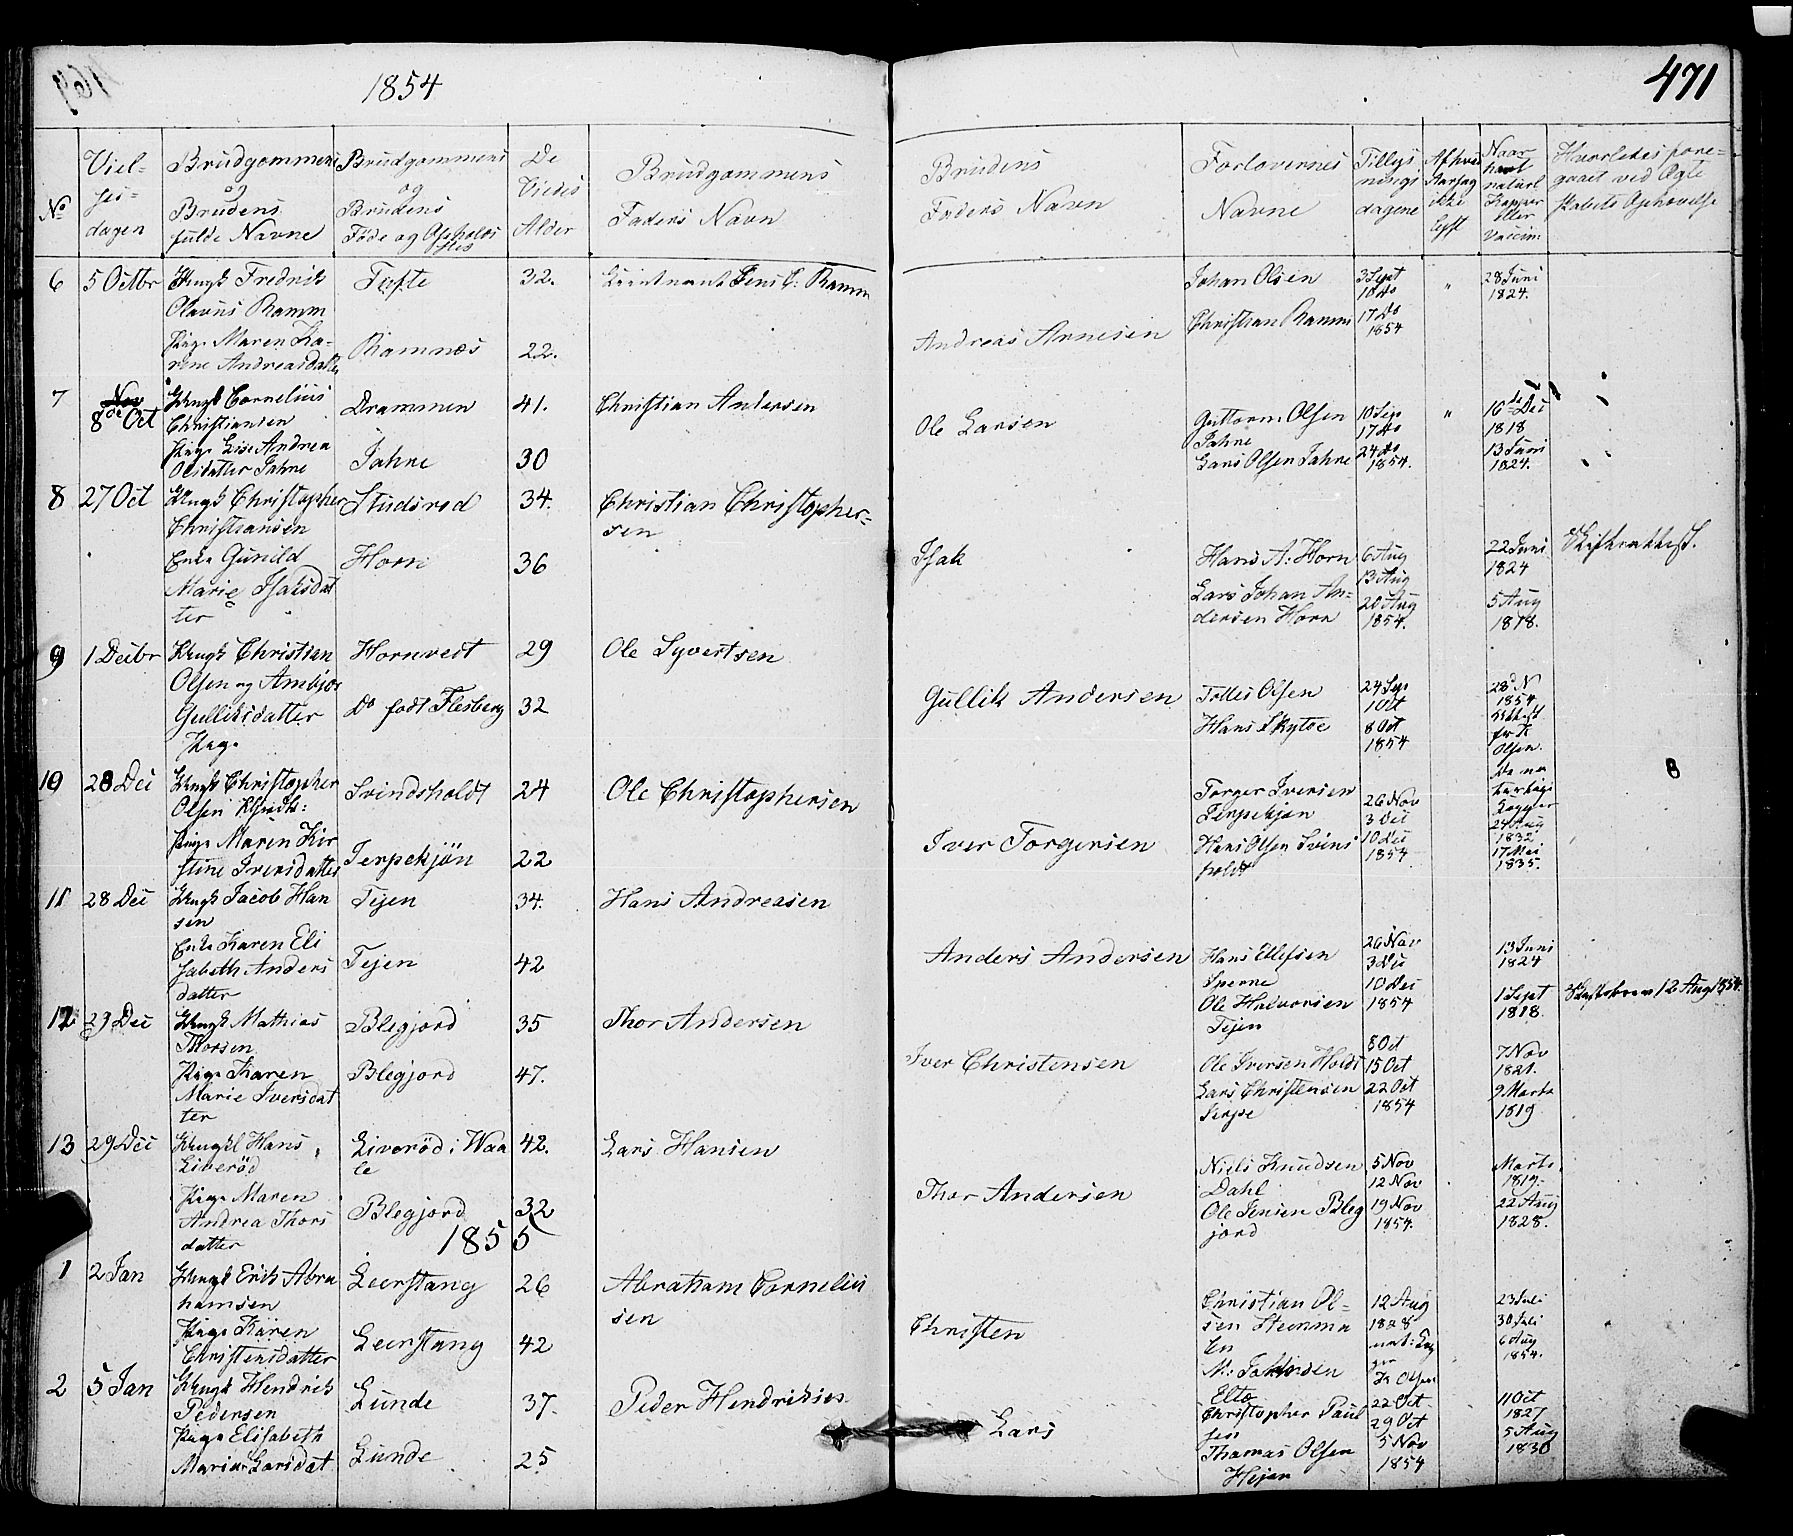 1854
471
No
Viel-
ses-
dagen
Brudgommens
og
Brudens
fulde Navne
Brudgommens
og
Brudens
Føde og Opholds
sted
De
Viedes
Alder
Brudgommens
Faders Navn
Brudens
Faders Navn
Forlovernes
Navne
Tillys
nings
dagene
Af hvad
Aarsag
ikke
lyst
Naar
havt
naturl
Kopper
eller
Vaccin:
Hvorledes fore-
gaaet ved Ægte
skabets Ophævelse
6 5 Octbr Ungk Fredrik Tofte 32. Lieutnant Jens L: Ramm Johan Olsen 3 Sept " 28 Juni
Olavus Ramm 10 do 1824.
Christian Ramm 17 do
Pige Maren Ka- Ramnæs 22. Andreas Arnesen 1854
rine Andreasdatter
7 Nov Ungk Cornelius Drammen 41. Christian Andersen Guttorm Olsen 10 Sep " 16de Dec
8de Oct Christiansen Ole Larsen Jahne 17 do 1818
Pige Lise Andrea Jahne 30 Lars Olsen Jahne 24 do 13 Juni
Olsdatter Jahne 1854. 1824.
8 27 Oct Ungk Christopher Studsrød 34. Christian Christopher-
Christiansen sen
Enke Gunild Horn 36 Isak Hans A: Horn 6 Aug 22 Juni Skifteattest.
Marie Isaksdat 13 Aug 1824
ter Lars Johan An- 20 Aug 5 Aug
dersen Horn 1854. 1818.
9 1 Decbr Ungk Christian Hornvedt 29 Ole Syvertsen
Olsen og Ambjør Do født Flesberg 32 Gullik Andersen Tollef Olsen 24 Sep 28 N
Gulliksdatter 1 Oct 1854
Pige Hans Skytøe 8 Oct
1854 Olsen.
10 28 Dec Ungk Christopher Svindsholdt 24 Ole Christophersen Torger Iversen 26 Nov
Olsen Jerpekjøn 3 Dec 24 Aug
Pige Maren Kir Jerpekjøn 22 Iver Torgersen Hans Olsen Svins 10 Dec 1832
stine Iversdatter holdt 1854 17 Mai
1835.
11 28 Dec Ungk Jacob Han Tejen 34. Hans Andreasen
sen
Enke Karen Eli Tejen 42 Anders Andersen Hans Ellefsen 26 Nov 13 Juni
sabeth Anders 3 Dec 1824
datter 10 Dec 1 Sept Skiftebrev 12 Aug 1854.
Ole Halvorsen 1854 1818.
Tejen
12 29 Dec Ungk Mathias Blegjord 35 Thor Andersen
Thorsen 8 Oct
Pige Karen Blegjord 47. Iver Christensen Ole Iversen Holdt 15 Oct 7 Nov
Marie Iversdat Lars Christensen 22 Oct 1821.
ter Jerpe 1854 9 Marts
1819
13 29 Dec Ungkl Hans Liverød i Waa 42. Lars Hansen
Liverød le Niels Knudsen 5 Nov Marts
Pige Maren Blegjord 32 Thor Andersen Dahl 12 Nov 1819.
Andrea Thors Ole Jensen Bleg 19 Nov 22 Aug
datter jord 1854. 1828.
1855
1 2 Jan Ungk Erik Abra Leerstang 26 Abraham Cornelius
hamsen sen Christian Ol- 12 Aug 23 Juli
Pige Karen Leerstang 42 Christen sen 1828 30 Juli
Christensdatter 6 Aug
1854.
2 5 Jan Ungk Hendrik Lunde 37. Peder Hendriksen Christopher Paul 22 Oct 11 Oct
Pedersen sen 29 Oct 1827
Pige Elisabeth Lunde 25 Lars Thomas Olsen 5 Nov 5 Aug
Maria Larsdat Hejan 1854 1830